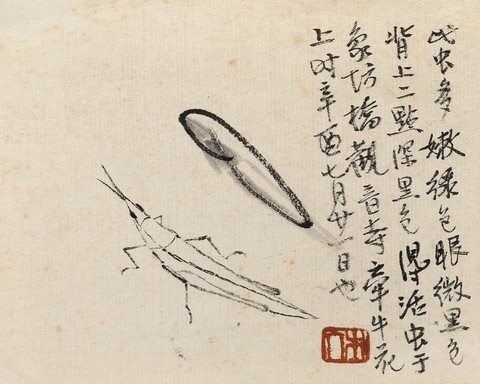 此虫多嫩緑色眼微黑色
背上二點深黑色得活虫于
象坊橋觀音寺牵牛花
上时辛酉七月廿一日也
木人